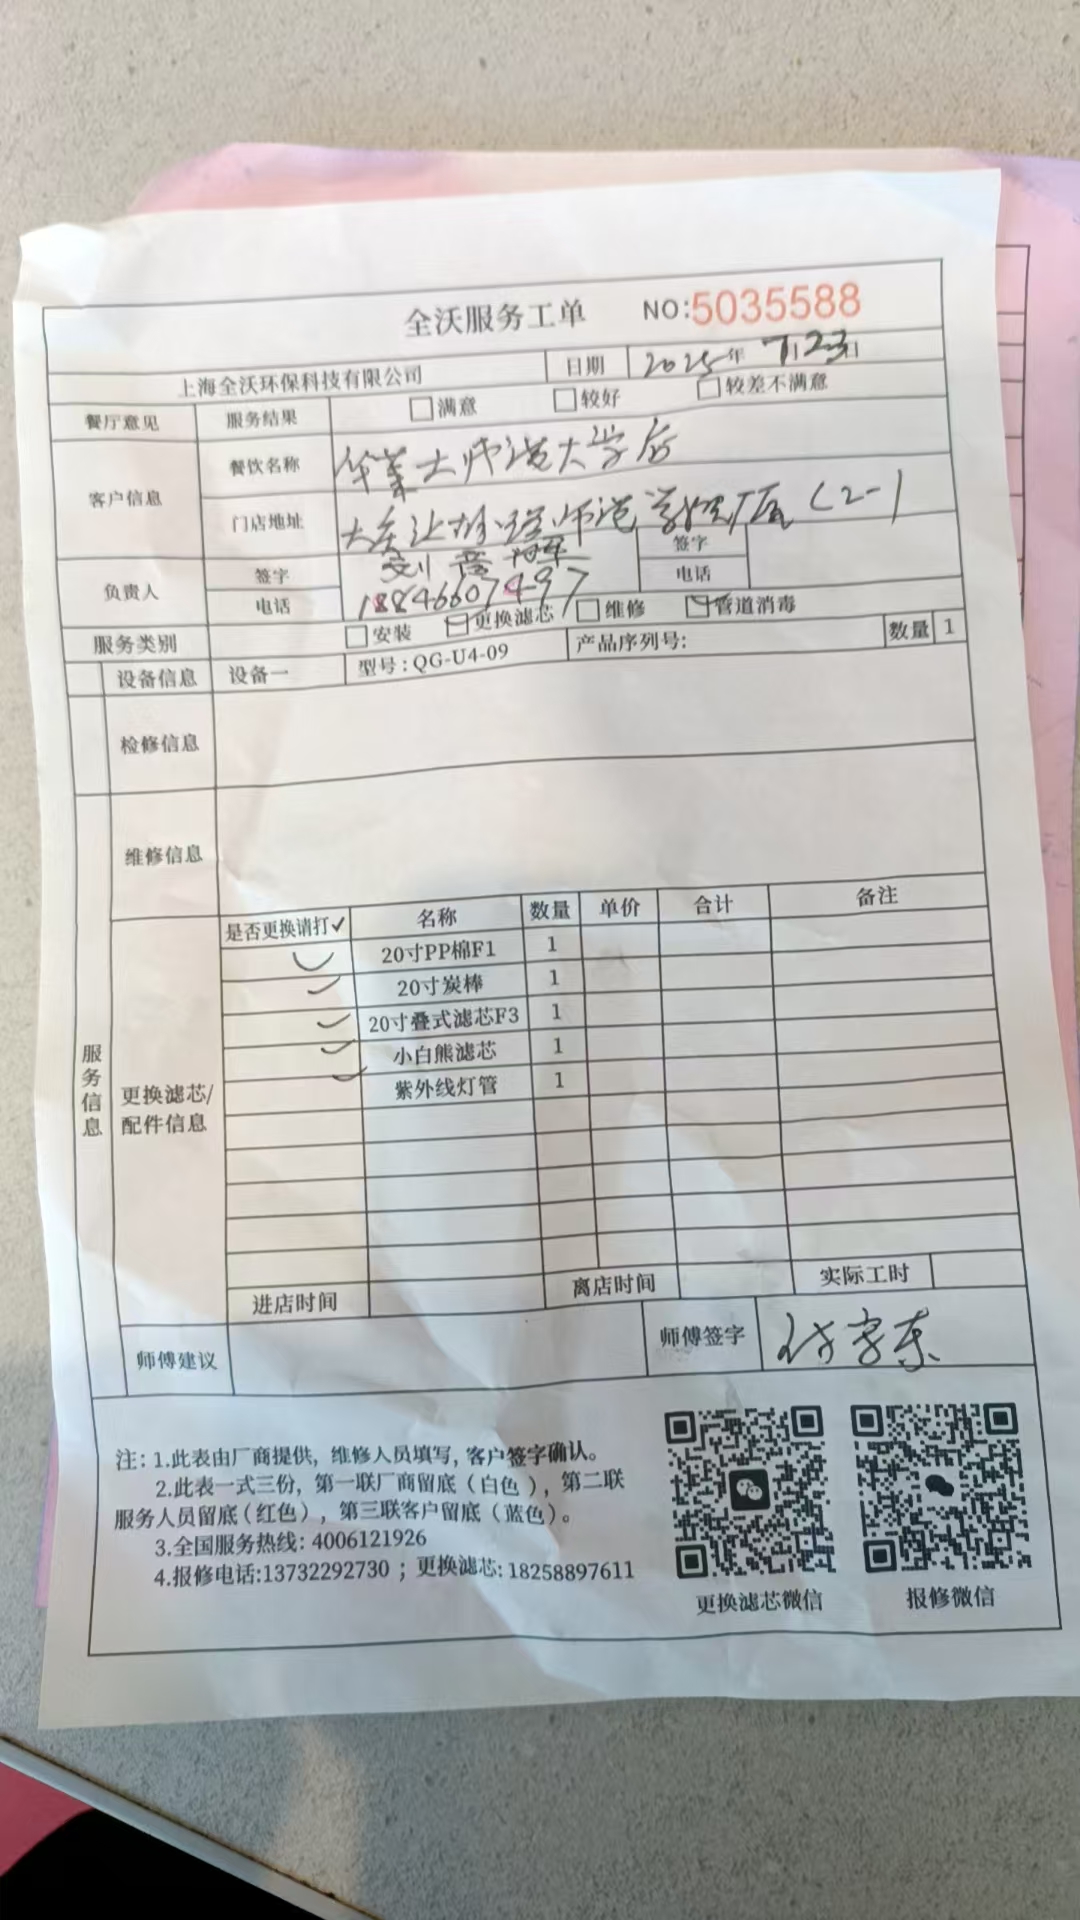 全沃服务工单 NO:5035588
上海全沃环保科技有限公司 日期 2025年7月23日
餐厅意见 服务结果 □满意 □较好 □较差不满意
客户信息 餐饮名称 大师范大学店
门店地址
负责人 签字 签字
电话 18846607497 电话
服务类别 □安装 ☑更换滤芯 □维修 ☑管道消毒
设备信息 设备一 型号:QG-U4-09 产品序列号: 数量 1
检修信息
维修信息
服务信息
更换滤芯/
配件信息
是否更换请打✓ 名称 数量 单价 合计 备注
✓ 20寸PP棉F1 1
✓ 20寸炭棒 1
✓ 20寸叠式滤芯F3 1
✓ 小白熊滤芯 1
✓ 紫外线灯管 1
进店时间 离店时间 实际工时
师傅建议 师傅签字
注:1.此表由厂商提供，维修人员填写，客户签字确认。
2.此表一式三份，第一联厂商留底（白色），第二联
服务人员留底(红色)，第三联客户留底（蓝色）。
3.全国服务热线: 4006121926
4.报修电话:13732292730；更换滤芯:18258897611
更换滤芯微信 报修微信